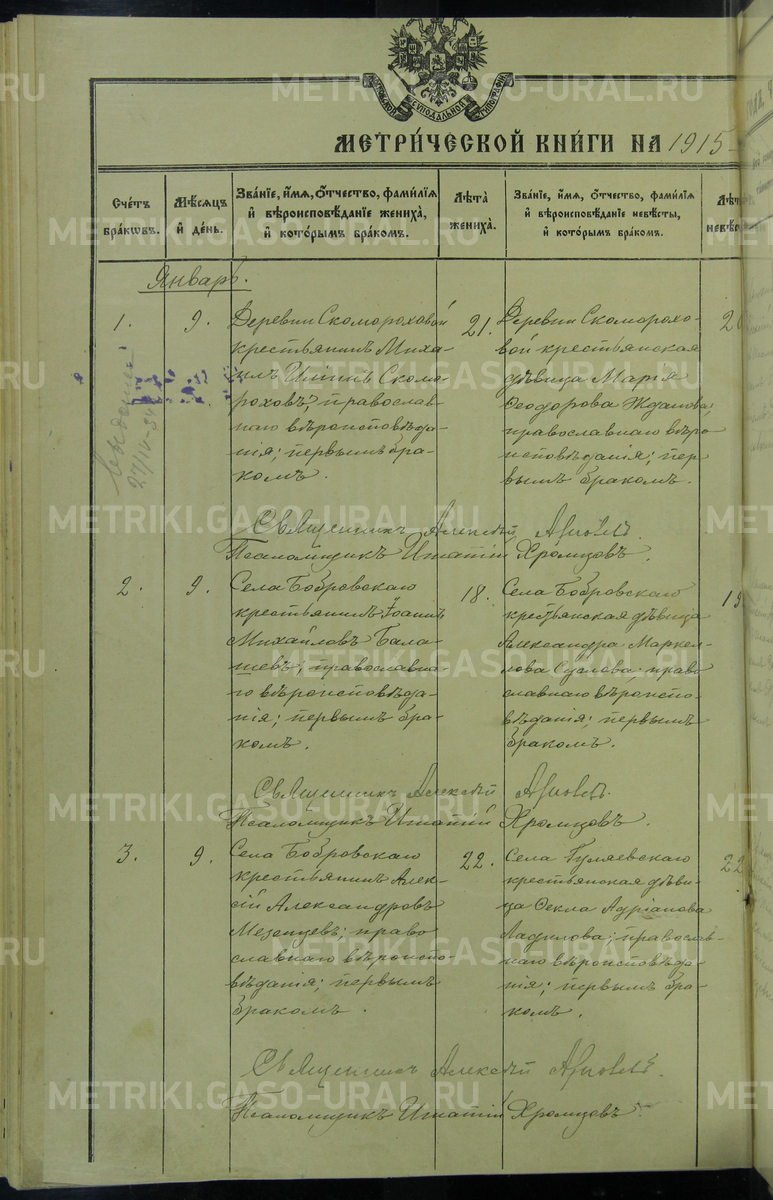 МЕТРИ́ЧЕСКОЙ КНИ́ГИ НА 1915
Сче́тъ бра́кѡвъ.
Мѣ́сяцъ и҆ де́нь.
Зва́нїе, и҆́мя, ѻ҆́тчество, фами́лїя и҆ вѣроисповѣ́данїе жениха̀, и҆ кото́рымъ бра́комъ.
Лѣ́та̀ жениха̀.
Зва́нїе, и҆́мя, ѻ҆́тчество, фами́лїя и҆ вѣроисповѣ́данїе невѣ́сты, и҆ кото́рымъ бра́комъ.
Январь.
1.
9.
Деревни Скомороховой
крестьянинъ Миха-
илъ Илiинъ Скомо-
роховъ, православ-
наго вѣроисповѣда-
нія; первымъ бра-
комъ.
21.
Деревни Скоморохо-
вой крестьянская
дѣвица Марія
Ѳеодорова Жданова;
православнаго вѣро
исповѣданія; пер
вымъ бракомъ.
27/IV-34
Священникъ Алексѣй
Псаломщикъ Игнатій Хромцовъ.
2.
9.
Села Бобровскаго
крестьянинъ Іоаннъ
Михайловъ Бала-
шевъ; православна-
го вѣроисповѣда-
нія; первымъ бра-
комъ.
18.
Села Бобровскаго
крестьянская дѣвица
Александра Маркел-
лова Суслова; право
славнаго вѣроиспо-
вѣданія; первымъ
бракомъ.
Священникъ Алексѣй
Псаломщикъ Игнатій Хромцовъ.
3.
9.
Села Бобровскаго
крестьянинъ Алек-
сій Александровъ
Мезенцевъ; право
славнаго вѣроиспо-
вѣданія; первымъ
бракомъ.
22.
Села Гуляевскаго
крестьянская дѣви-
ца Ѳекла Адріанова
Ладилова; православ-
наго вѣроисповѣда-
нія; первымъ бра-
комъ.
22
Священникъ Алексѣй
Псаломщикъ Игнатій Хромцовъ.
METRIKI.GASO-URAL.RU